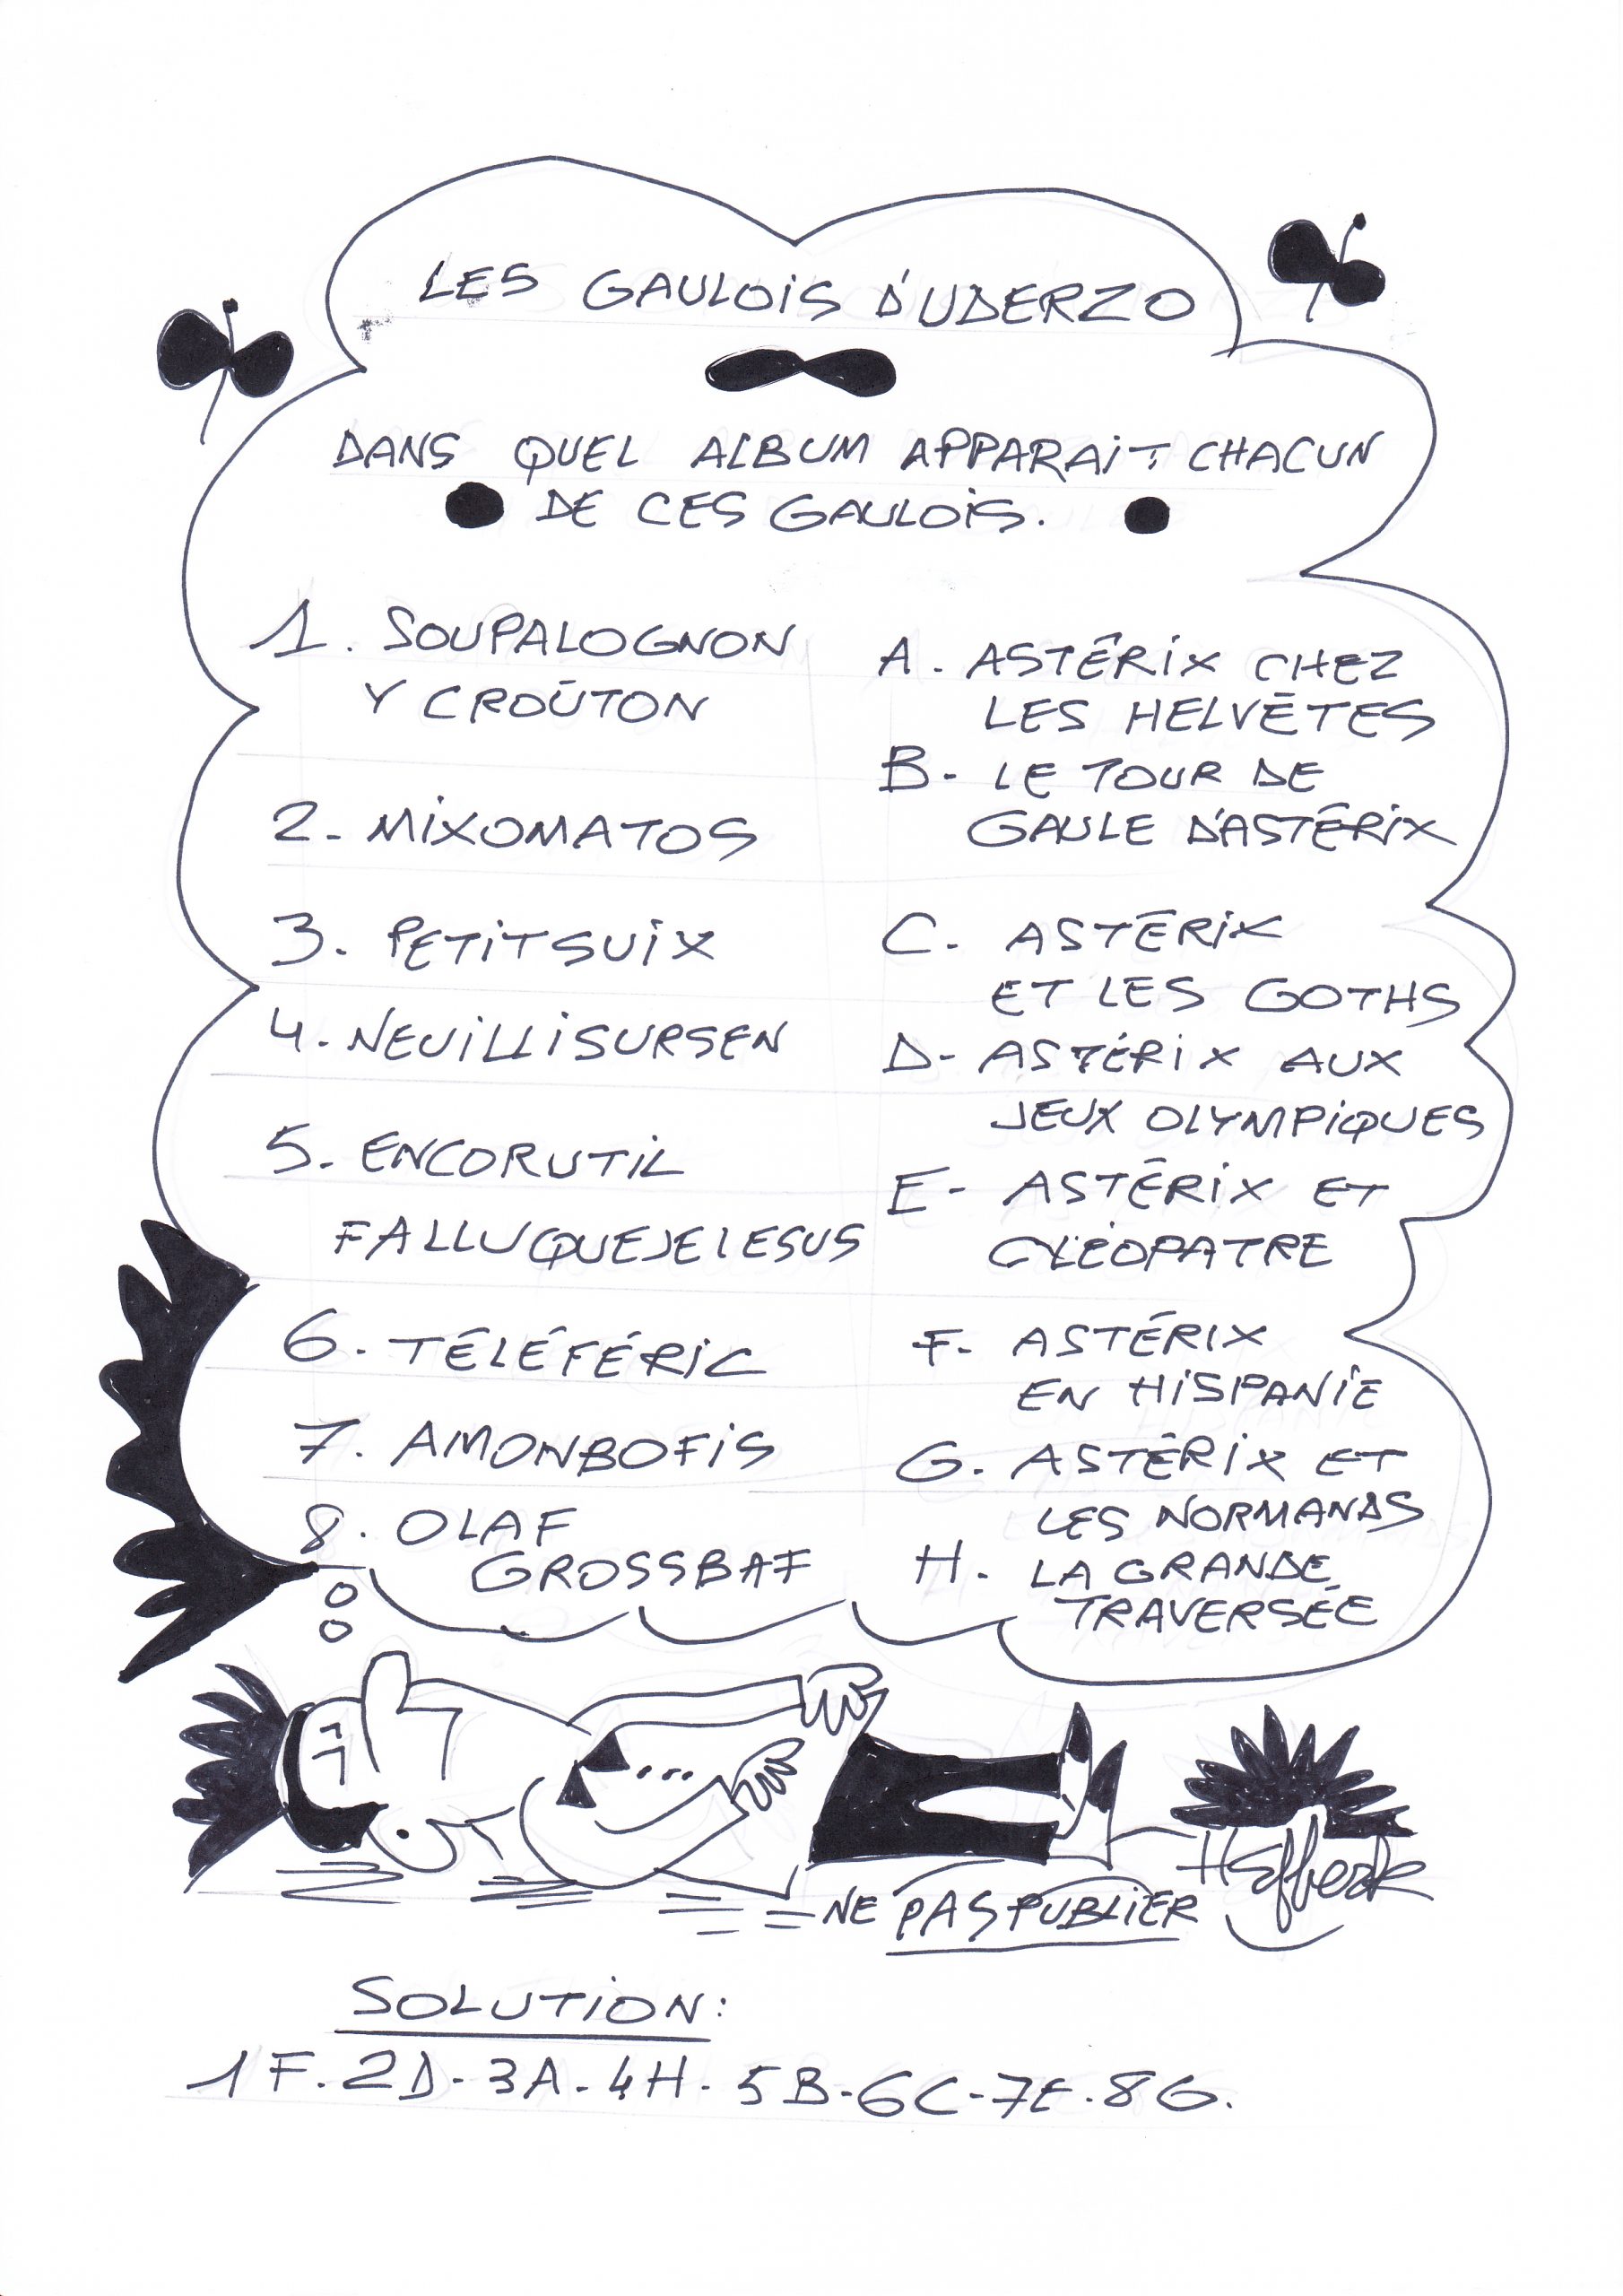 LES GAULOIS D'UDERZO
DANS QUEL ALBUM APPARAIT CHACUN
DE CES GAULOIS.
1. SOUPALOGNON
Y CROÛTON
2. MIXOMATOS
3. PETITSUIX
4. NEUILLISURSEN
5. ENCORUTIL
FALLUQUEJELESUS
6. TÉLÉFÉRIC
7. AMONBOFIS
8. OLAF
GROSSBAF
A. ASTÉRIX CHEZ
LES HELVÈTES
B- LE TOUR DE
GAULE D'ASTÉRIX
C. ASTÉRIX
ET LES GOTHS
D- ASTÉRIX AUX
JEUX OLYMPIQUES
E- ASTÉRIX ET
CLÉOPATRE
F. ASTÉRIX
EN HISPANIE
G. ASTÉRIX ET
LES NORMANDS
H. LA GRANDE
TRAVERSÉE
NE PAS PUBLIER
SOLUTION:
1F.2D-3A.4H.5B-6C-7E.8G.